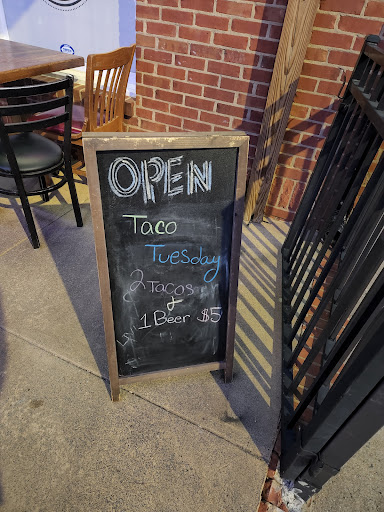 OPEN
Taco
Tuesday
2 Tacos
&
1 Beer $5